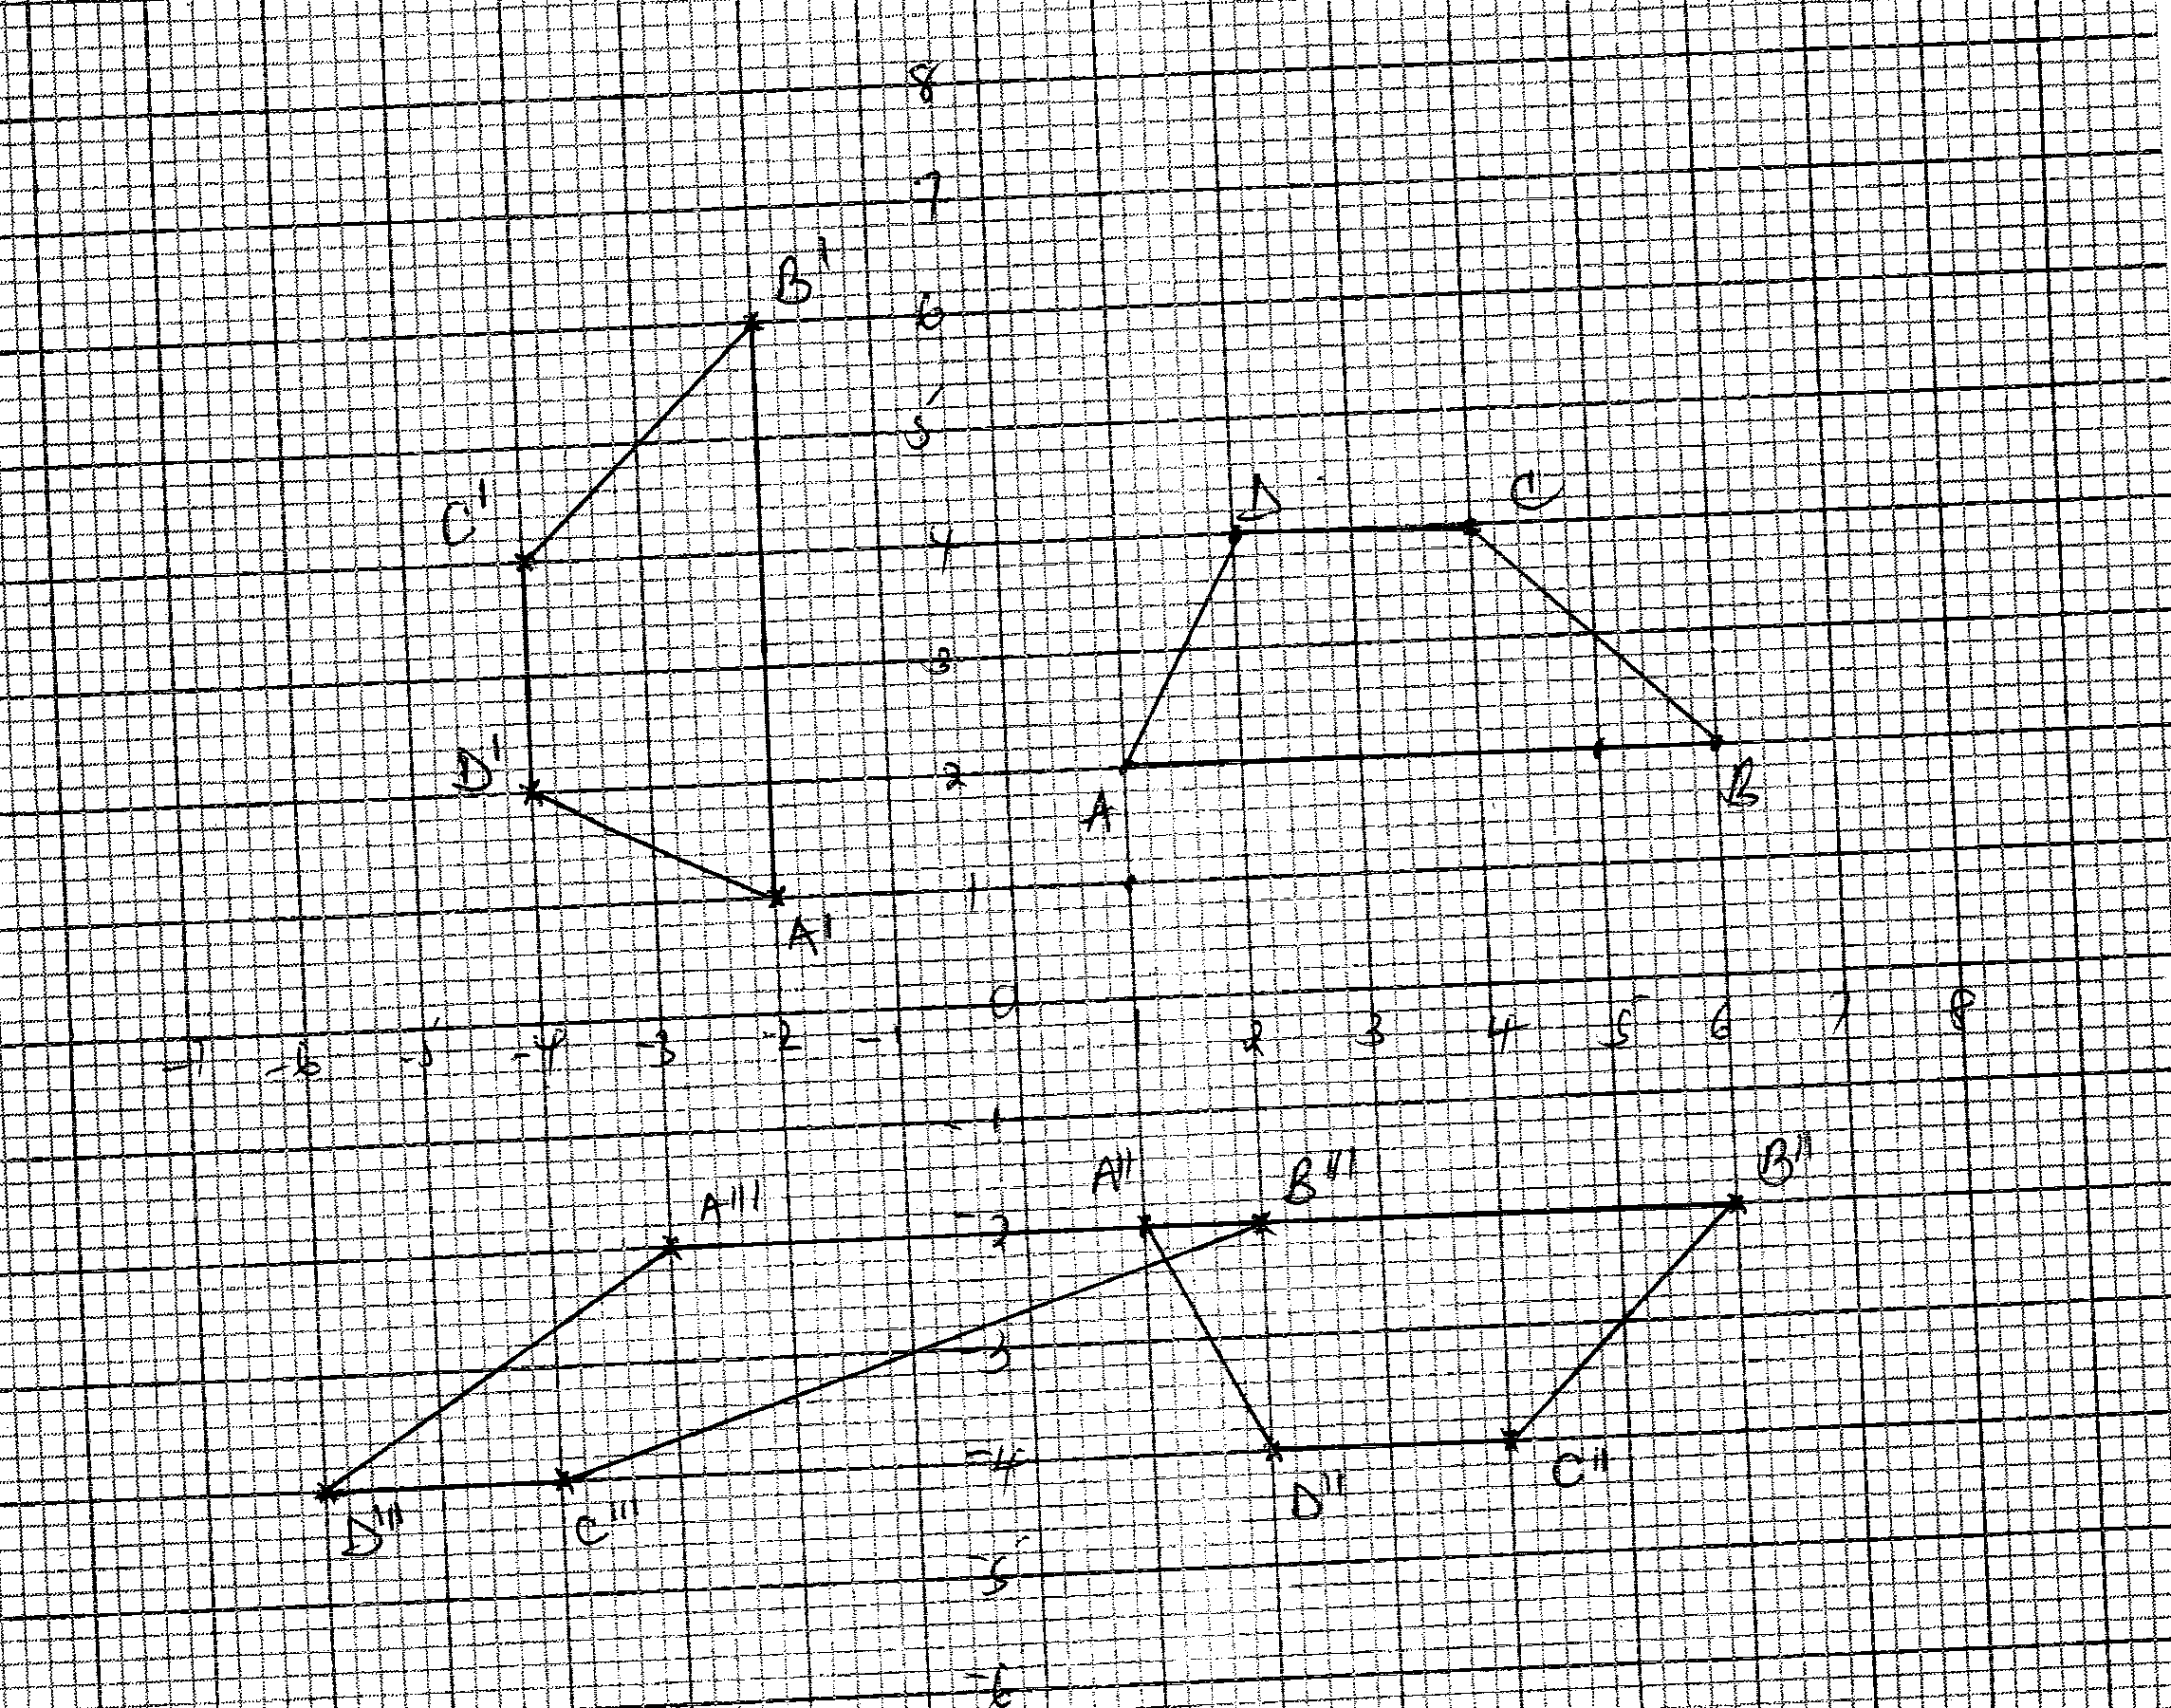 8
7
B'
6
5
C' 4 D C
3
D' 2 A B
A' 1
0
-7 -6 -5 -4 -3 -2 -1 1 2 3 4 5 6 7 8
-1
A''' A'' B''' B''
-2
-3
-4
D''' C''' D'' C''
-5
-6